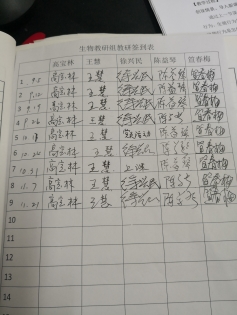 生物教研组教研签到表
高宝林 王慧 徐兴民 陈益琴 管春梅
1 9.5 高宝林 王慧 徐兴民 陈益琴 管春梅
2 9.12 高宝林 王慧 徐兴民 陈益琴 管春梅
3 9.19 高宝林 王慧 徐兴民 陈益琴 管春梅
4 9.26 高宝林 王慧 徐兴民 陈益琴 管春梅
5 高宝林 王慧 陈益琴 管春梅
6 10.24 高宝林 王慧 徐兴民 陈益琴 管春梅
7 10.31 高宝林 王慧 上课 陈益琴 管春梅
8 11.7 高宝林 王慧 徐兴民 陈益琴 管春梅
9 11.21 高宝林 王慧 徐兴民 陈益琴 管春梅
10
11
12
13
14
15